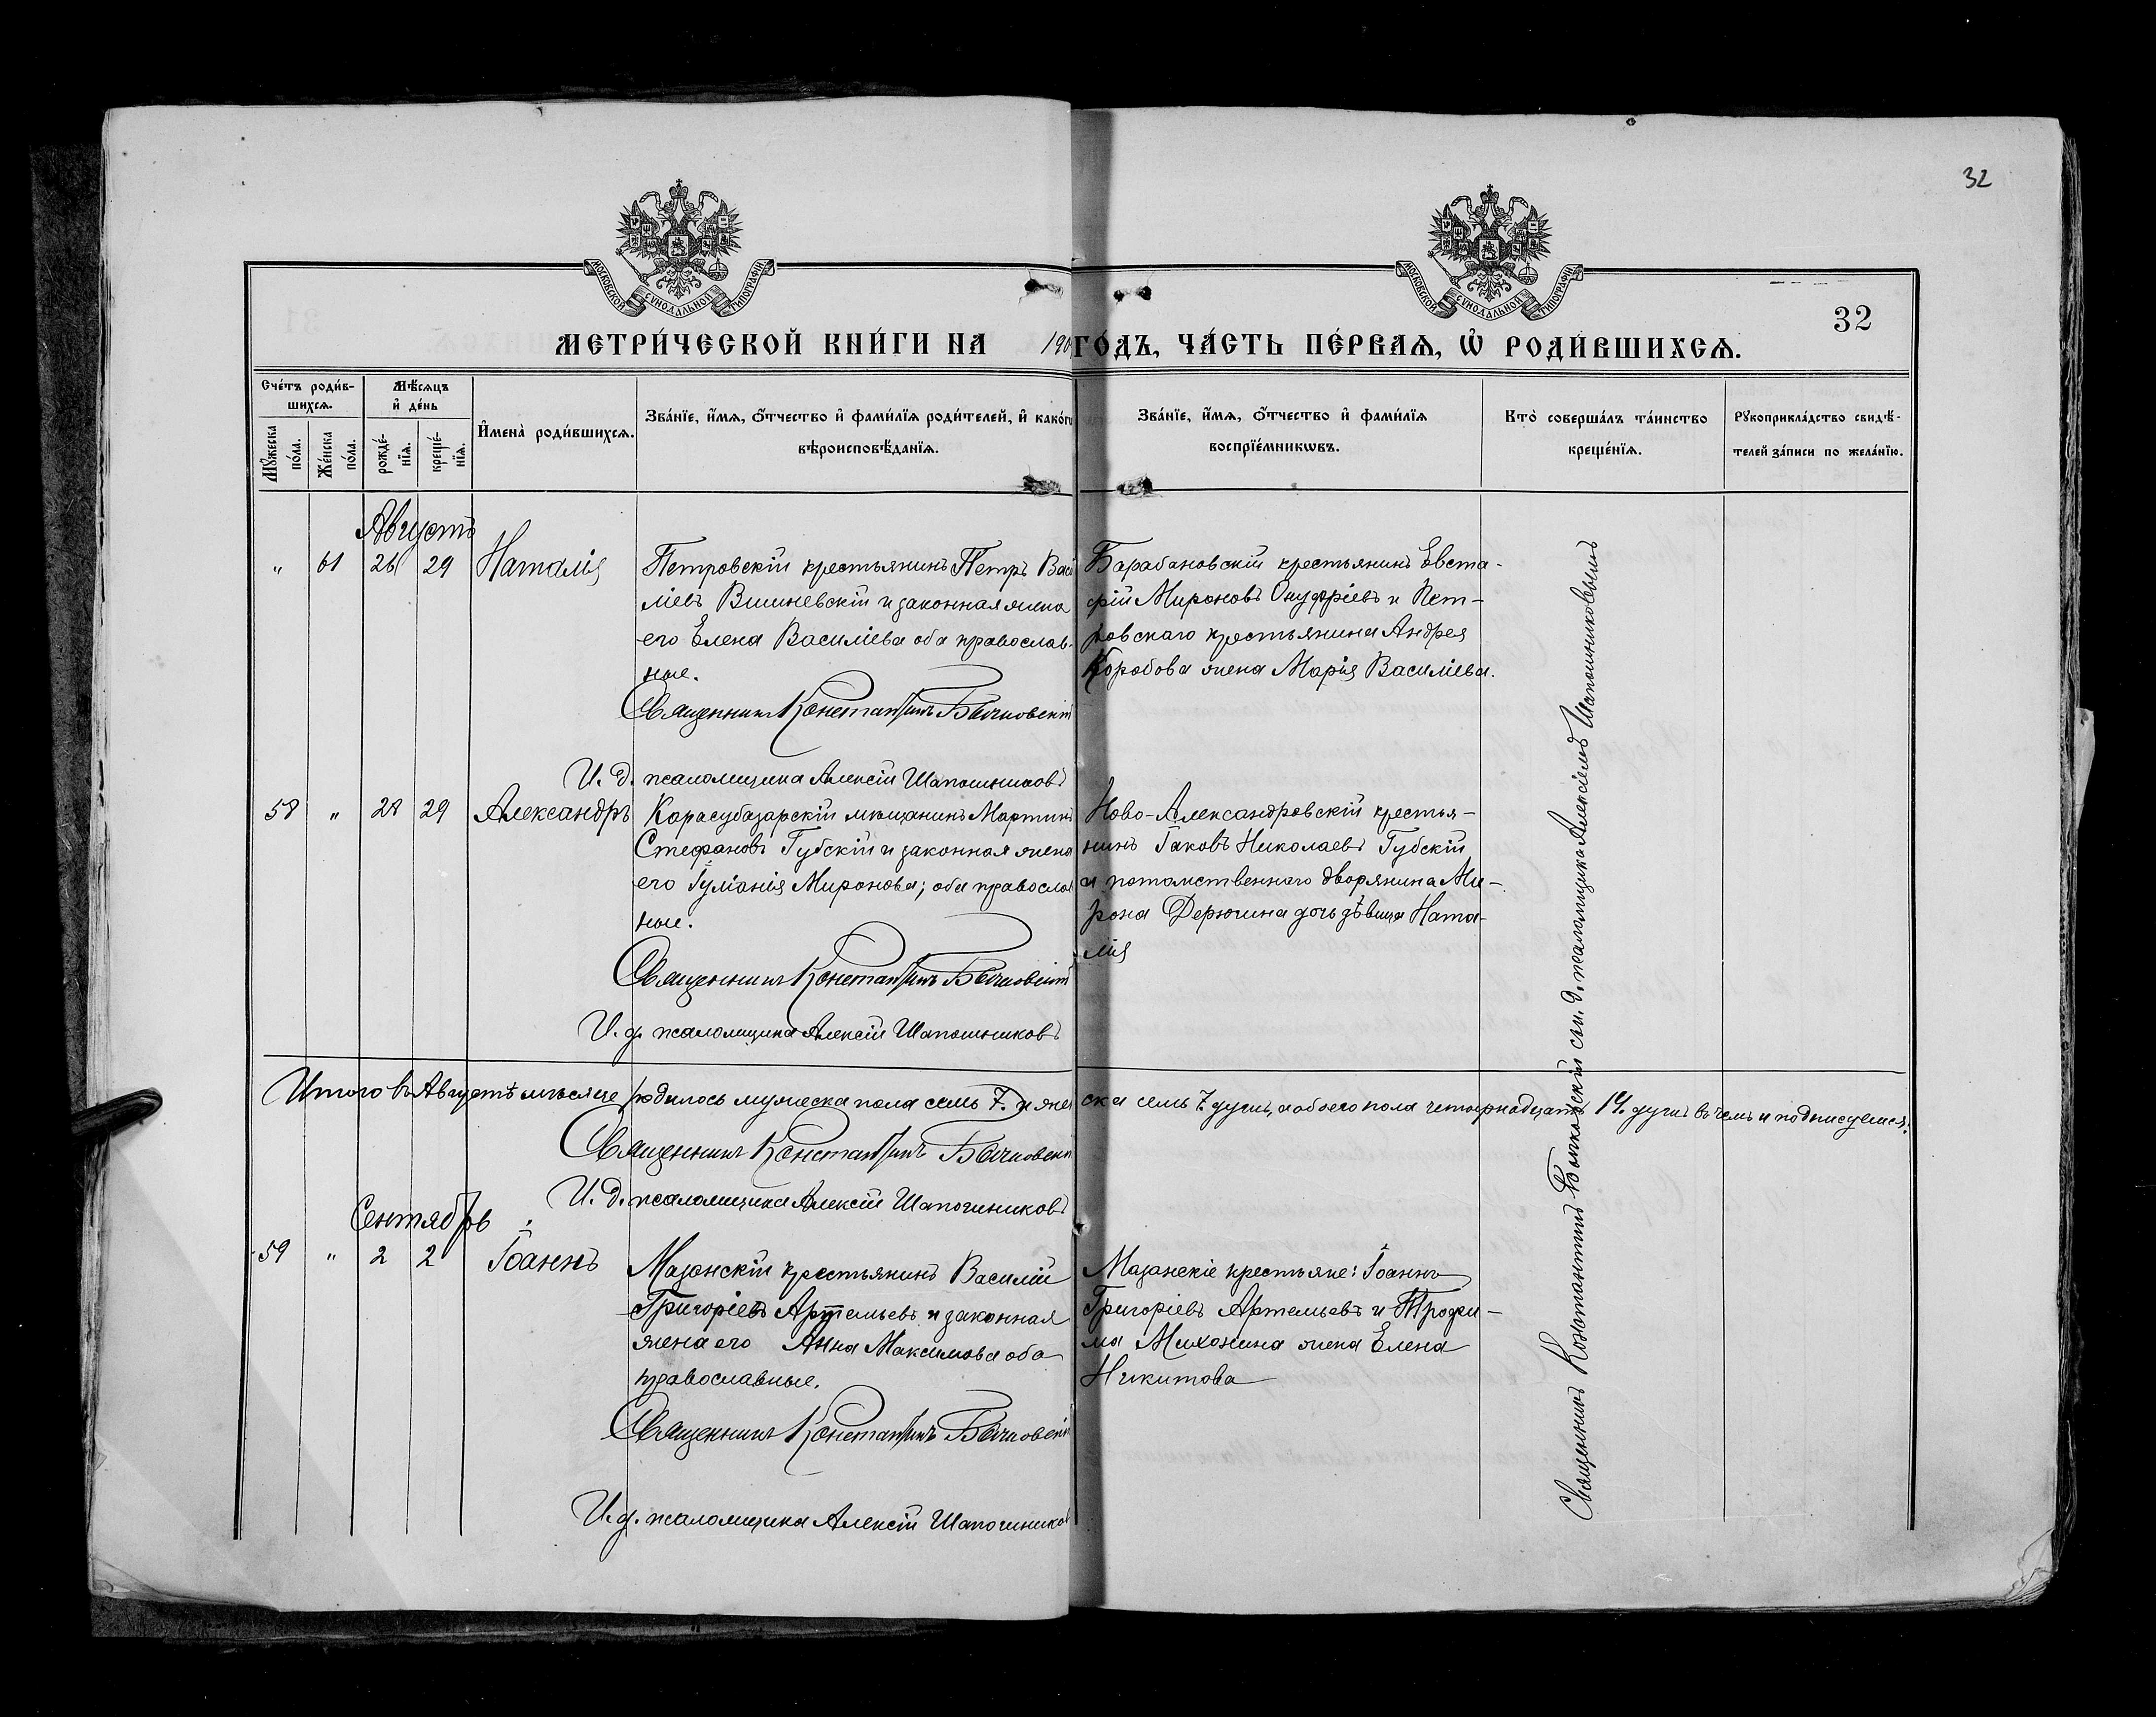 32
МОСКОВСКОЙ СѴНОДАЛЬНОЙ ТИПОГРАФІИ
МОСКОВСКОЙ СѴНОДАЛЬНОЙ ТИПОГРАФІИ
32
МЕТРИ́ЧЕСКОЙ КНИ́ГИ НА 190 ГО́ДЪ, ЧА́СТЬ ПЕ́РВАѦ, Ѡ҆ РОДИ́ВШИХСѦ.
Сче́тъ роди́в-
шихсѧ.
Мꙋ́жеска по́ла.
Же́нска по́ла.
Мѣ́сѧцъ
и҆ де́нь
рожде́-
нїѧ.
креще́-
нїѧ.
И҆мена̀ роди́вшихсѧ.
Зва́нїе, и҆́мѧ, ѻ҆́тчество и҆ фами́лїѧ роди́телей, и҆ како́гѡ
вѣроисповѣ́данїѧ.
Зва́нїе, и҆́мѧ, ѻ҆́тчество и҆ фами́лїѧ
воспрїе́мникѡвъ.
Кто̀ соверша́лъ та́инство
креще́нїѧ.
Рꙋкоприкла́дство свидѣ́-
телей за́писи по жела́нїю.
Августъ
" 61 26 29 Наталія
Петровскій крестьянинъ Петръ Васи
ліевъ Вишневскій и законная жена
его Елена Василіева оба православ-
ные.
Священникъ Константинъ Бычковскій
И. д. псаломщика Алексій Шапошниковъ
Барабановскій крестьянинъ Евста-
фій Мироновъ Онуфріевъ и Пет-
ровскаго крестьянина Андрея
Коробова жена Марія Василіева.
58 " 28 29 Александръ
Карасубазарскій мѣщанинъ Мартинъ
Стефановъ Губскій и законная жена
его Іуліанія Миронова; оба православ
ные.
Священникъ Константинъ Бычковскій
И. д. псаломщика Алексій Шапошниковъ
Ново-Александровскій крестья-
нинъ Іаковъ Николаевъ Губскій
и потомственнаго дворянина Ми-
рона Дерюгина дочь дѣвица Ната-
лія
Итого въ Августѣ мѣсяце родилось мужеска пола семь 7. и жен ска семь 7. душъ, а обоего пола четырнадцать 14. душъ въ чемъ и подписуемся:
Священникъ Константинъ Бычковскій
И. д. псаломщика Алексій Шапошниковъ
Сентябрь
59 " 2 2 Іоаннъ
Мазанскій крестьянинъ Василій
Григоріевъ Артемьевъ и законная
жена его Анна Максимова оба
православные.
Священникъ Константинъ Бычковскій
И. д. псаломщика Алексій Шапошников
Мазанскіе крестьяне: Іоаннъ
Григоріевъ Артемьевъ и Трофи-
ма Михонина жена Елена
Никитова
Священникъ Константинъ Бычковскій съ и. д. псаломщика Алексіемъ Шапошниковымъ